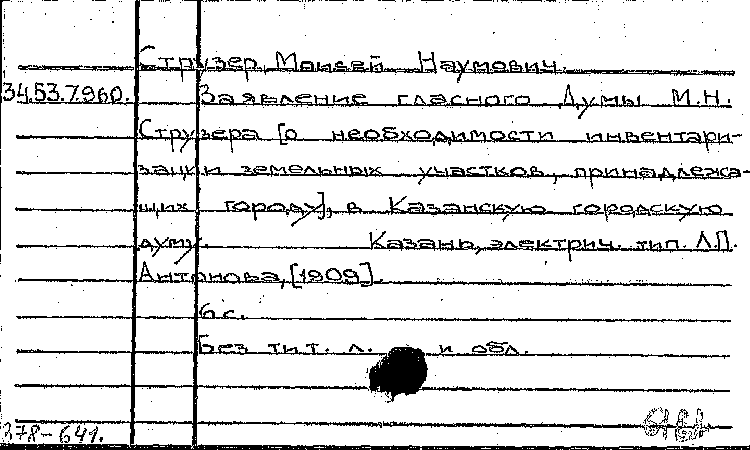 Струзер, Моисей Наумович.
34.53.7.960. Заявление гласного Думы М.Н.
Струзера [о необходимости инвентари-
зации земельных участков, принадлежа-
щих городу], в Казанскую городскую
думу. Казань, электрич. тип. Л.П.
Антонова, [1909].
6 с.
Без тит. л. и обл.
378-641.